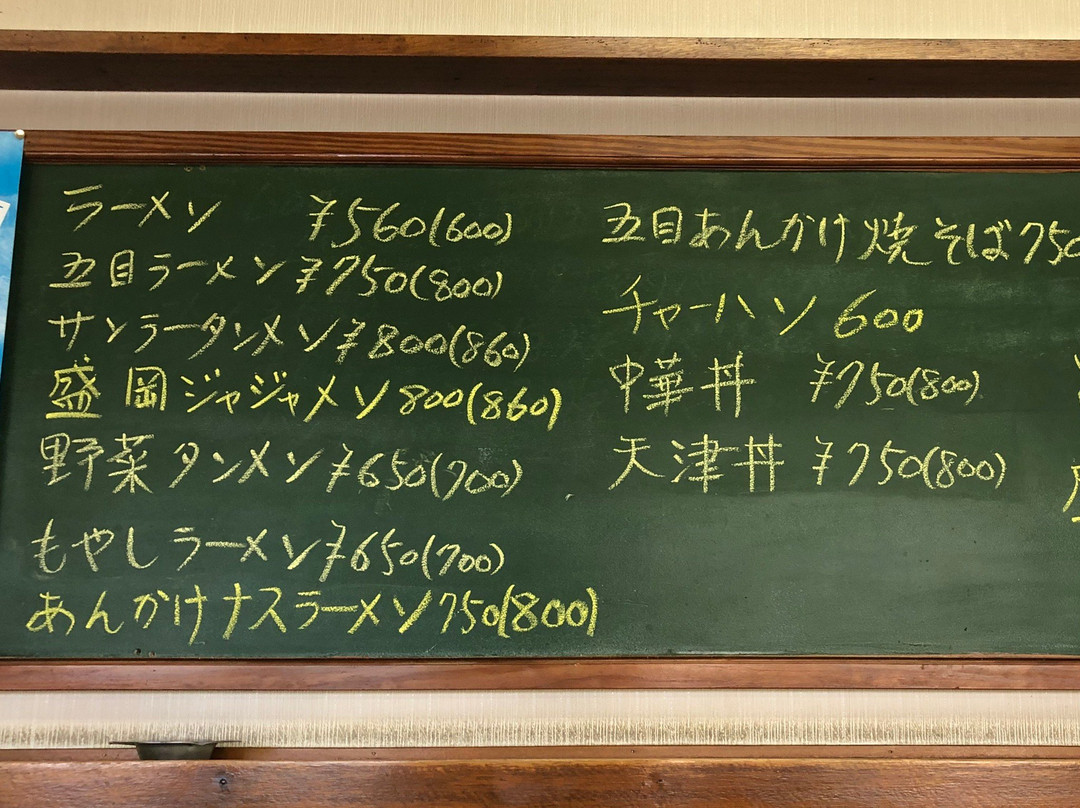 ラーメン ¥560(600)
五目ラーメン ¥750(800)
サンラータンメン ¥800(860)
盛岡ジャジャメン 800(860)
野菜タンメン ¥650(700)
もやしラーメン ¥650(700)
あんかけナスラーメン 750(800)
五目あんかけ焼そば 750
チャーハン 600
中華丼 ¥750(800)
天津丼 ¥750(800)